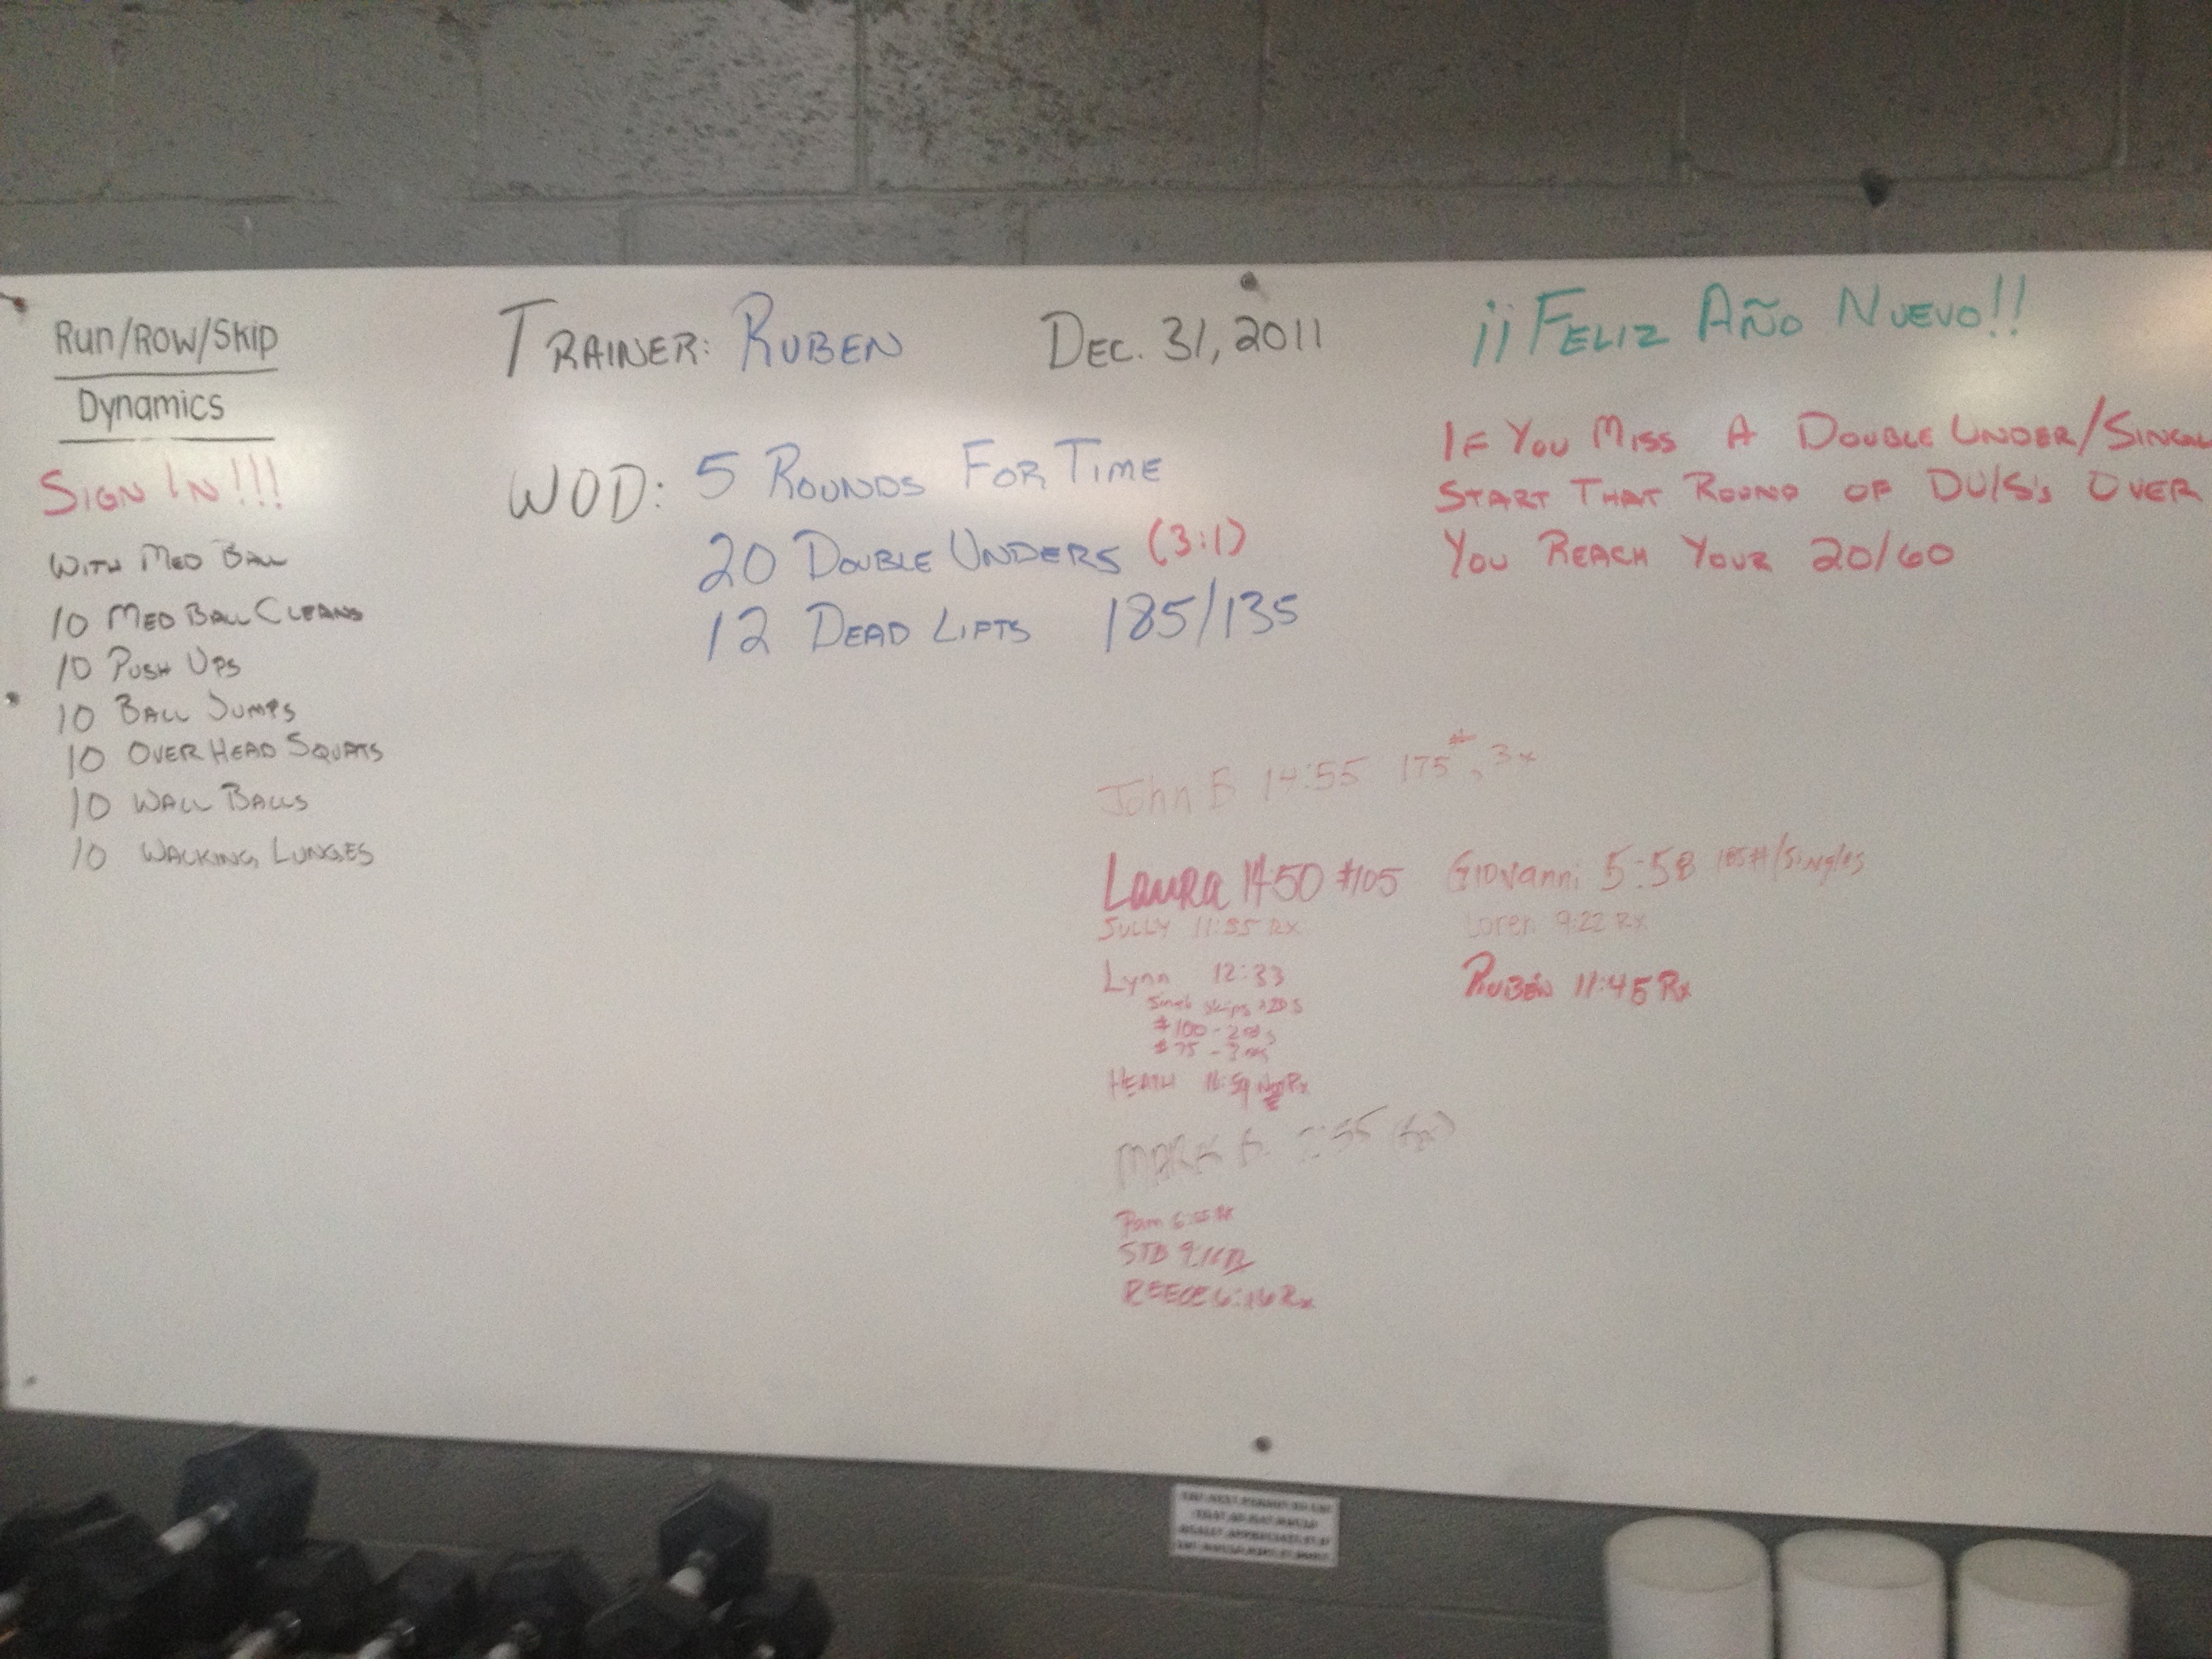 Run/Row/Skip
Dynamics
SIGN IN!!!
WITH MED BALL
10 MED BALL CLEANS
10 PUSH UPS
10 BALL JUMPS
10 OVER HEAD SQUATS
10 WALL BALLS
10 WALKING LUNGES
TRAINER: RUBEN
DEC. 31, 2011
¡¡FELIZ AÑO NUEVO!!
WOD: 5 ROUNDS FOR TIME
20 DOUBLE UNDERS (3:1)
12 DEAD LIFTS 185/135
IF YOU MISS A DOUBLE UNDER/
START THAT ROUND OF DU/S's OVER
YOU REACH YOUR 20/60
John B 14:55 175#, 3x
Laura 1450 #105
SULLY RX
Lynn 12:33
skips
#100 -
#75 -
HEATH Rx
MARK
Pam
STB
REECE 6:16 Rx
Giovanni 5:58 185#/Singles
Loren 9:22 Rx
RUBEN 11:45 Rx